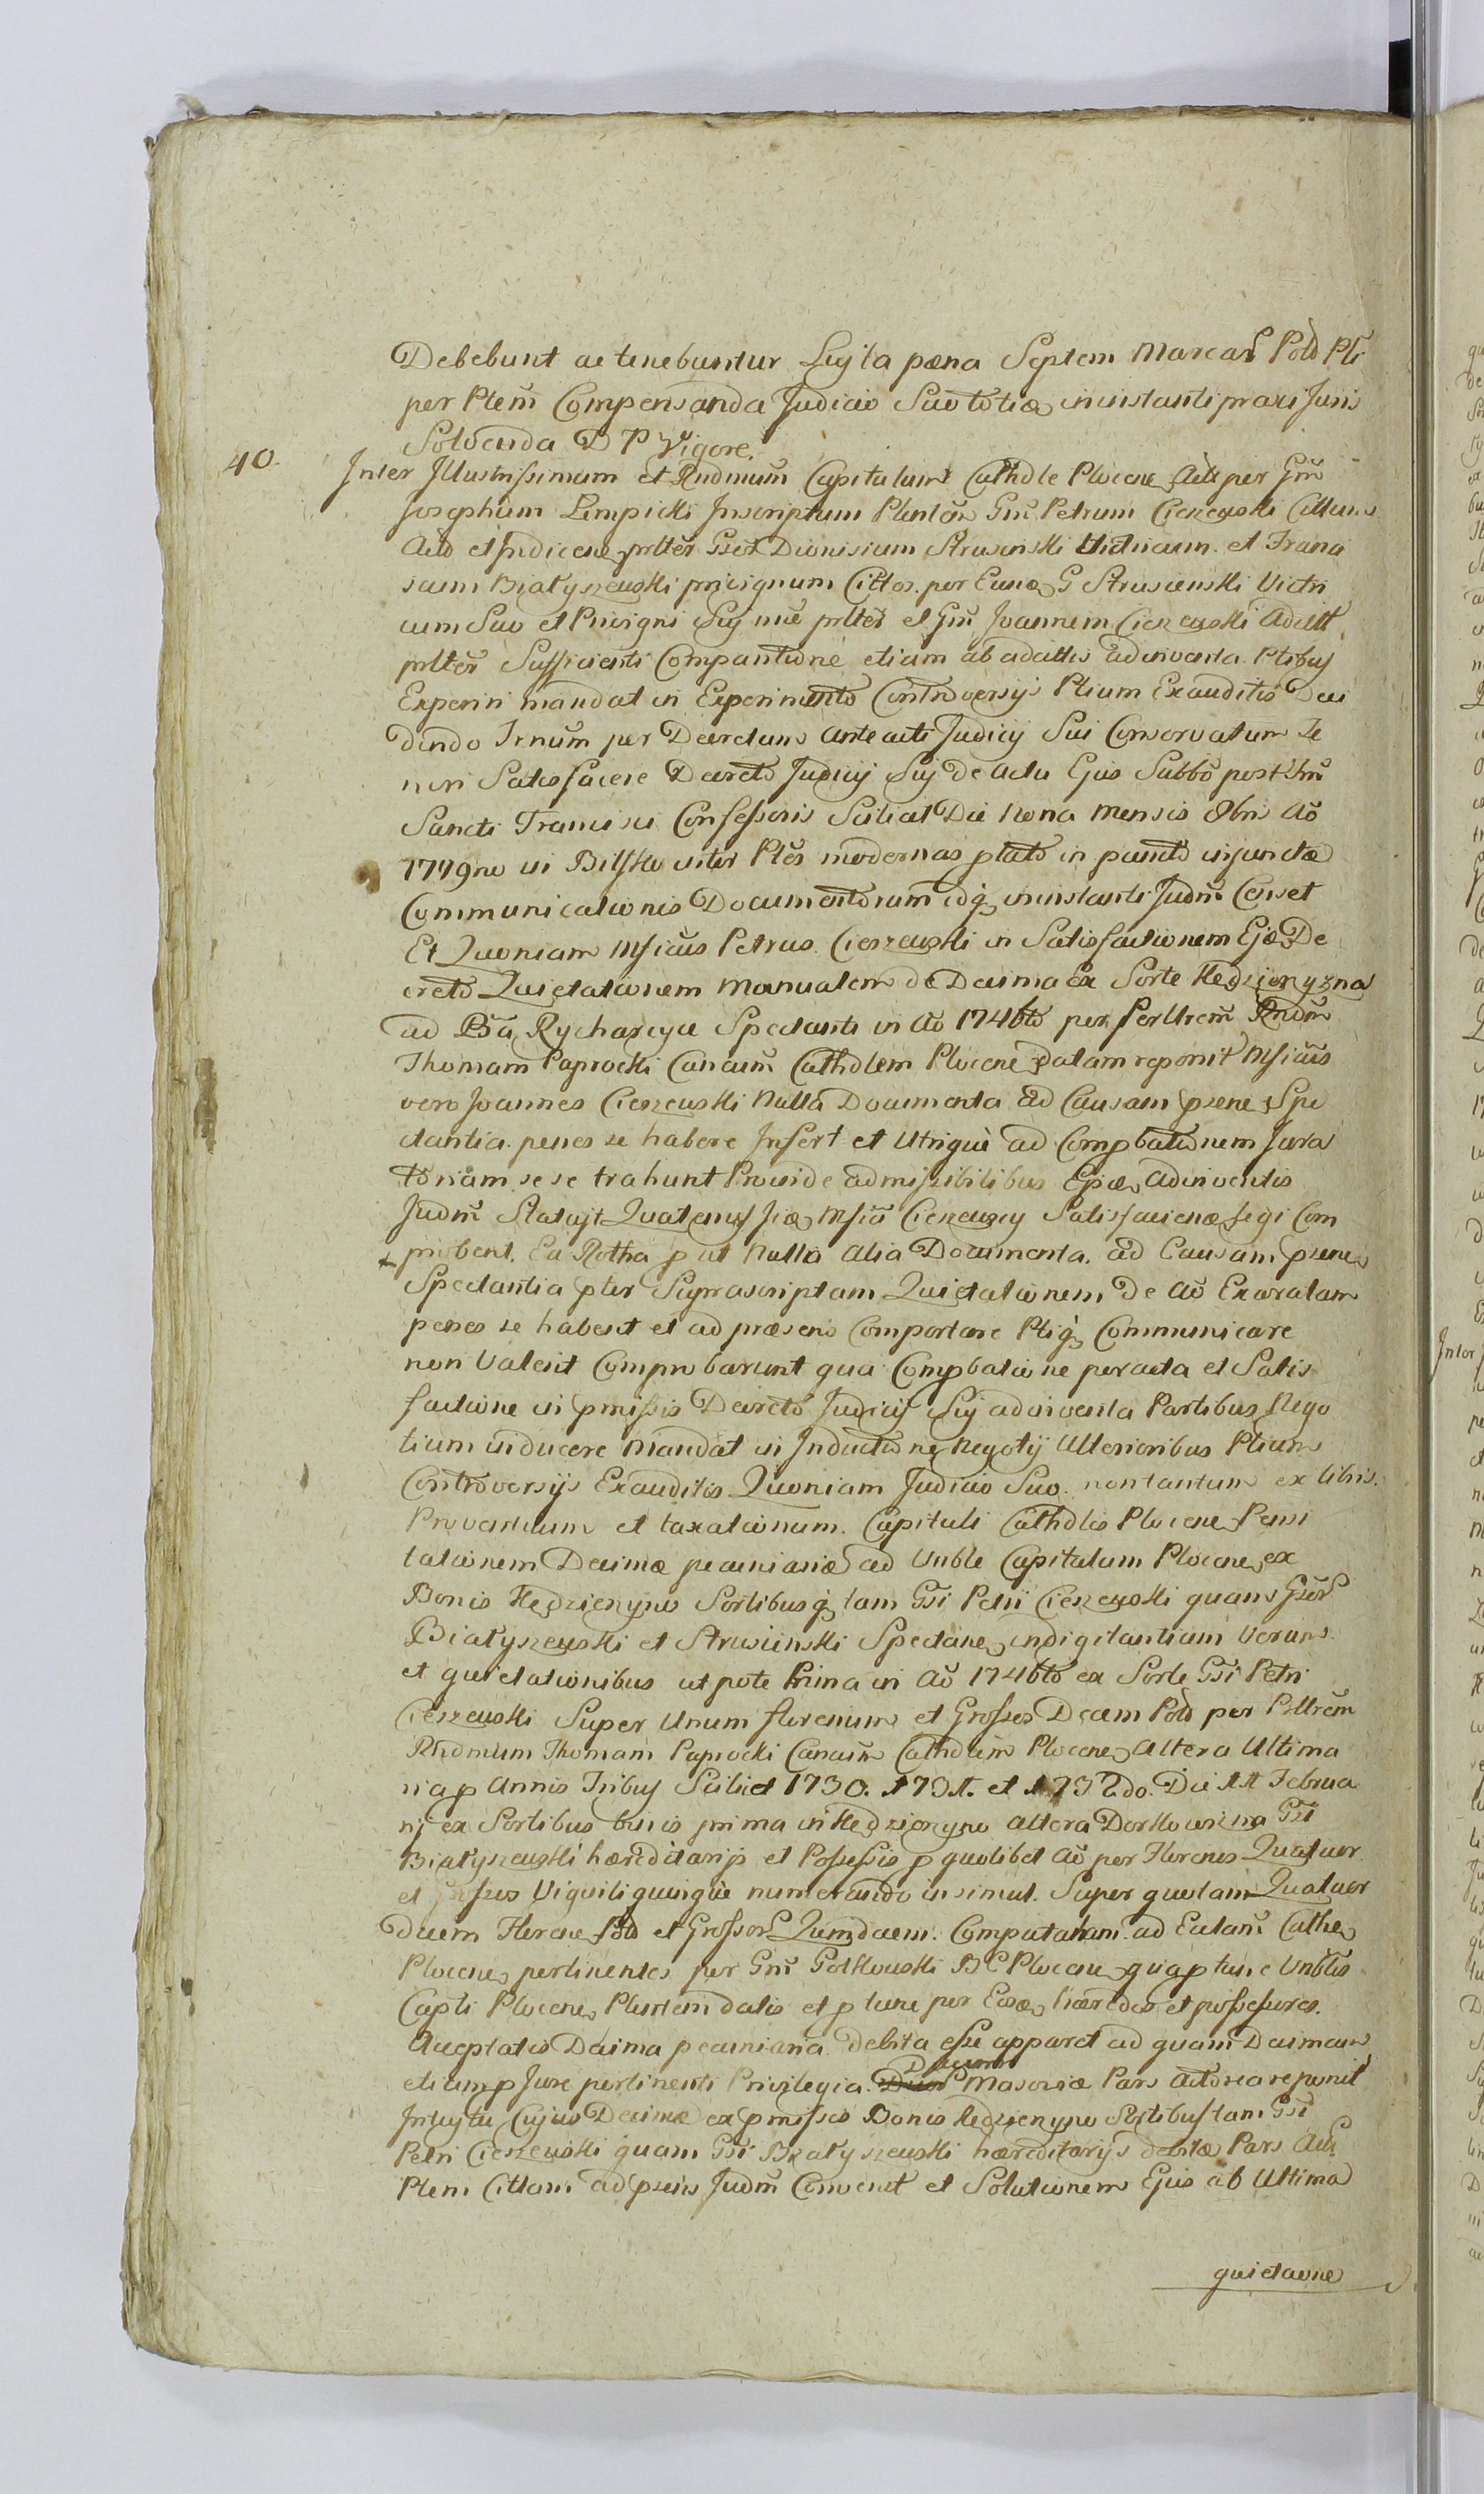 Debebunt ac tenebuntur Sup ta pœna Septem Marcar Pold Pti
per Ptem Compensanda Judicio Suo totiæ ininstanti praxi Juris
Solvenda D P Vigore.
40.
Inter Illustrissimum et Rndmum Capitulum Cathdle Plocene Acti per Gm
Josephum Lempicki Inscriptum Plenton Gm Petrum Cieszewski Cittum
Acto et Indicene prltes Gset Dionisium Strusinski Victricum et Franci
scum Białyszewski privignum Cittos per Eund G Strusienski Victri
cum Suo et Privigni Suj nue prlter et Gm Joannem Cieszewski Adcitt
prlter Sufficienti Comparitione etiam ab adcittis adinventa Ptibus
Experiri mandat in Experimento Controversijs Ptium Exauditis Deci
dendo Trnum per Decretum anteacti Judicij Sui Conservatum te
neri Satisfacere Decreto Judicij Suj de actu Ejus Sabbo post fm
Sancti Francisci Confessoris Scilicet Die Nona Mensis 8bris Ao
1779no in Bielsko inter Ptes modernas plato in puncto injunctæ
Communicationis Documentorum idq ininstanti Judm Censet
Et Quoniam Mficus Petrus Cieszewski in Satisfactionem Ejd De
creto Quietationem Manualem de Decima Ex Sorte Kędzierzyzna
ad Bna Rycharcyce Spectanti in Ao 1746to per Perllrem Rndm
Thomam Paprocki Cancum Cathdlem Plocene datam reponit Mficus
vero Joannes Cieszewski Nulla Documenta ad Causam psene Spe
ctantia penes se habere Infert et Utrique ad Compbationem Jura
toriam se se trahunt Proinde admissibilibus Ejsde adinventis
Judm Statujt Quatenus Jid Mfici Cieszewscy Satisfacienœ Legi Com
probent. Ea Rotha put Nulla Alia Documenta ad Causam psene
Spectantia pter Suprascriptam Quietationem de Ao Exaratam
penes se habent et ad præsens Comportare Ptiq Communicare
non Valent Comprobarunt qua Compbatione peracta et Satis
factione in pmissis Decreto Judicij Suj adinventa Partibus Nego
tium inducere Mandat in Inductione Negotij Ulterioribus Ptium
Controversijs Exauditis Quoniam Judicio Suo non tantum ex libris
Proventuum et taxationum Capituli Cathdlis Plocene Pensi
tationem Decimæ pecuniariæ ad Vnble Capitulum Plocene ex
Bonis Kędzierzyno Sortibusq tam Gsi Petri Cieszewski quam Gser
Białyszewski et Strusiinski Spectane indigitantium Verum
et quietationibus ut pote Prima in Ao 1746to ex Sorte Gsi Petri
Cieszewski Super Unum florenum et Grossos Decem Pold per Plltrem
Rndmum Thomam Paprocki Cancum Cathdlem Plocene Altera Ultima
ria p Annis Tribus Scilicet 1730. 1731. et 1732do. Die 11 Februa
rij ex Sortibus binis prima in Kędzierzyno altera Dorkowizna Gsi
Białyszewski hæreditarijs et Possessis p quolibet Ao per Florenos Quatuor
et Grossos Viginti quinque numerando insimul. Super quotam Quatuor
decem Florene Pold et Grossor Quindecim Computatam ad Ectam Cathe
Plocene pertinentes per Gm Gołkowski B C Plocene qua p tunc Vnblis
Capti Plocene Plentem datis et p tunc per Eosd hæredes et possessores.
Acceptatis Decima pecuniaria debita esse apparet ad quam Decimam
etiam p Jure pertinenti Privilegia Ducum Masoviæ Pars Actorea reponit
Intuytu Cujus Decimæ ex pmissis Bonis Kędzierzyno Sortibus tam Gsi
Petri Cieszewski quam Gsi Białyszewski hæreditarijs debitæ Pars Act
Ptem Cittam ad psens Judm Convenit et Solutionem Ejus ab Ultima
quietaone